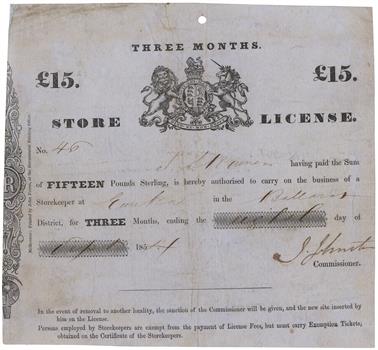 THREE MONTHS.
£15. £15.
STORE LICENSE.
No. 46
having paid the Sum
of FIFTEEN Pounds Sterling, is hereby authorised to carry on the business of a
Storekeeper at Eureka in the Ballarat
District, for THREE Months, ending the day of
1854
J. Johnston
Commissioner.
In the event of removal to another locality, the sanction of the Commissioner will be given, and the new site inserted by
him on the License.
Persons employed by Storekeepers are exempt from the payment of License Fees, but must carry Exemption Tickets,
obtained on the Certificate of the Storekeepers.